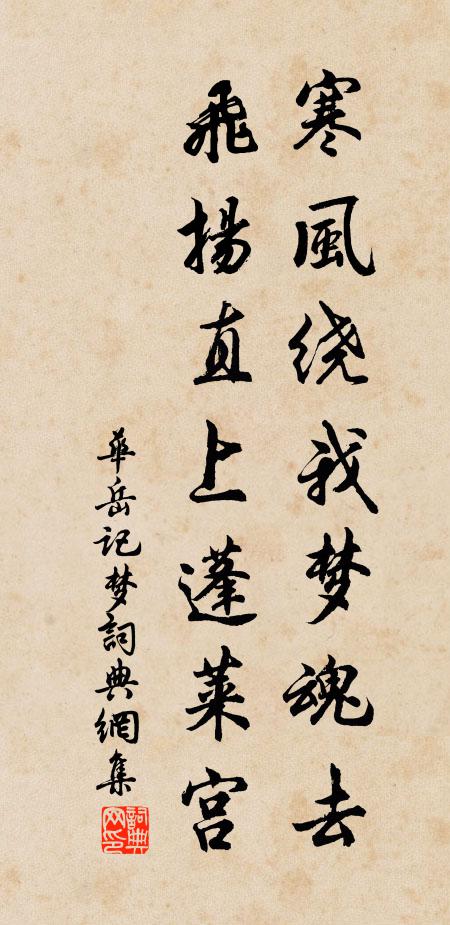 寒風绕我梦魂去
飛揚直上蓬莱宫
華岳记梦詞典網集
詞典
网印